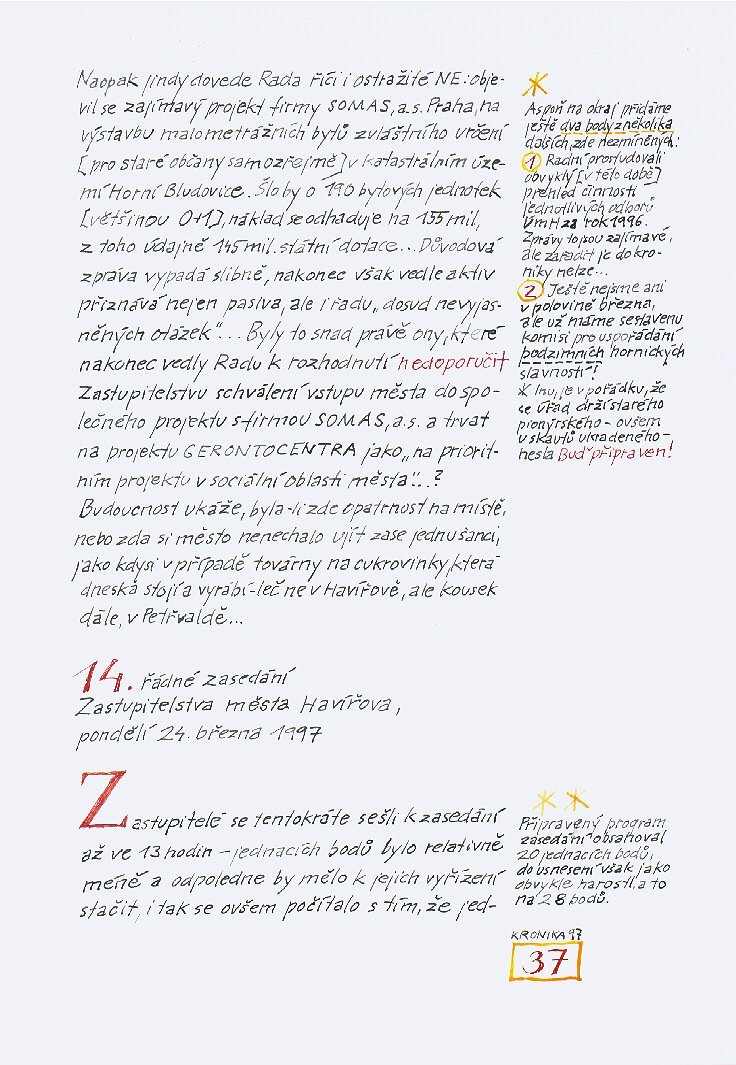 Naopak jindy dovede Rada říci i ostražité NE: obje-
vil se zajímavý projekt firmy SOMAS, a.s. Praha, na
výstavbu malometrážních bytů zvláštního určení
[pro staré občany samozřejmě] v katastrálním úze-
mí Horní Bludovice. Šlo by o 190 bytových jednotek
[většinou 0+1], náklad se odhaduje na 155 mil,
z toho údajně 145 mil. státní dotace... Důvodová
zpráva vypadá slibně, nakonec však vedle aktiv
přiznává nejen pasiva, ale i řadu „dosud nevyjas-
něných otázek"... Byly to snad právě ony, které
nakonec vedly Radu k rozhodnutí nedoporučit
Zastupitelstvu schválení vstupu města do spo-
lečného projektu s firmou SOMAS, a.s. a trvat
na projektu GERONTOCENTRA jako „na priorit-
ním projektu v sociální oblasti města"...?
Budoucnost ukáže, byla-li zde opatrnost na místě,
nebo zda si město nenechalo ujít zase jednu šanci,
jako kdysi v případě továrny na cukrovinky, která
dneska stojí a vyrábí-leč ne v Havířově, ale kousek
dále, v Petřvaldě...
14. řádné zasedání
Zastupitelstva města Havířova,
pondělí 24. března 1997
Zastupitelé se tentokráte sešli k zasedání
až ve 13 hodin – jednacích bodů bylo relativně
méně a odpoledne by mělo k jejich vyřízení
stačit, i tak se ovšem počítalo s tím, že jed-
*
Aspoň na okraj přidáme
ještě dva body z několika
dalších, zde nezmíněných:
1 Radní prostudovali
obvyklý [v této době]
přehled činnosti
jednotlivých odborů
ÚMH za rok 1996.
Zprávy to jsou zajímavé,
ale zařadit je do kro-
niky nelze...
2 Ještě nejsme ani
v polovině března,
ale už máme sestavenu
komisi pro uspořádání
podzimních hornických
slavností!
* Inu, je v pořádku, že
se úřad drží starého
pionýrského - ovšem
u skautů ukradeného -
hesla Buď připraven!
* *
Připravený program
zasedání obsahoval
20 jednacích bodů,
do usnesení však jako
obvykle narostl, a to
na 28 bodů.
KRONIKA 97
37